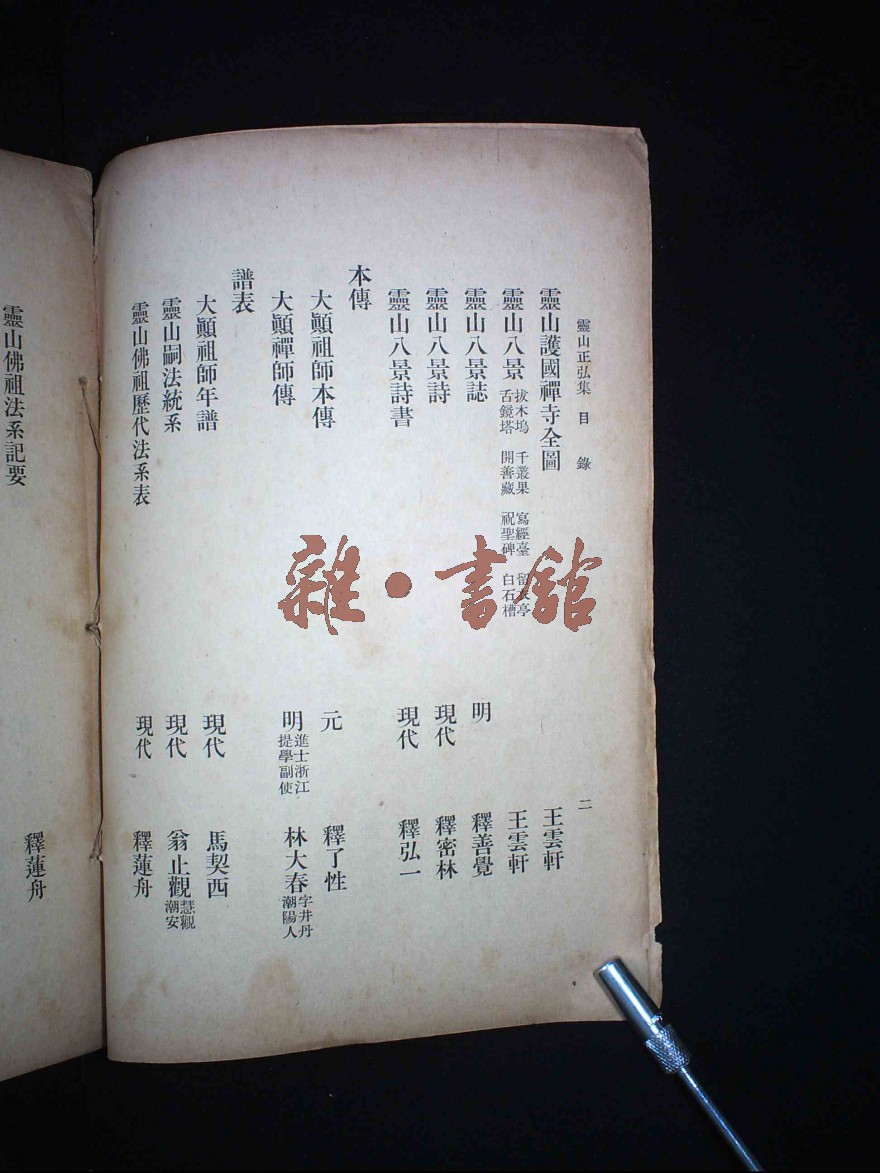 靈山正弘集 目錄 二
靈山護國禪寺全圖 王雲軒
靈山八景 拔木塢 千叢果 寫經臺 留衣亭 舌鏡塔 開善藏 祝聖碑 白石槽 王雲軒
靈山八景誌 明 釋善覺
靈山八景詩 現代 釋密林
靈山八景詩書 現代 釋弘一
本傳
大顚祖師本傳 元 釋了性
大顚禪師傳 明 進士浙江提學副使 林大春 字井丹潮陽人
譜表
大顚祖師年譜 現代 馬契西
靈山嗣法統系 現代 翁止觀 慧觀潮安
靈山佛祖歷代法系表 現代 釋蓮舟
靈山佛祖法系記要 釋蓮舟
雜·書館